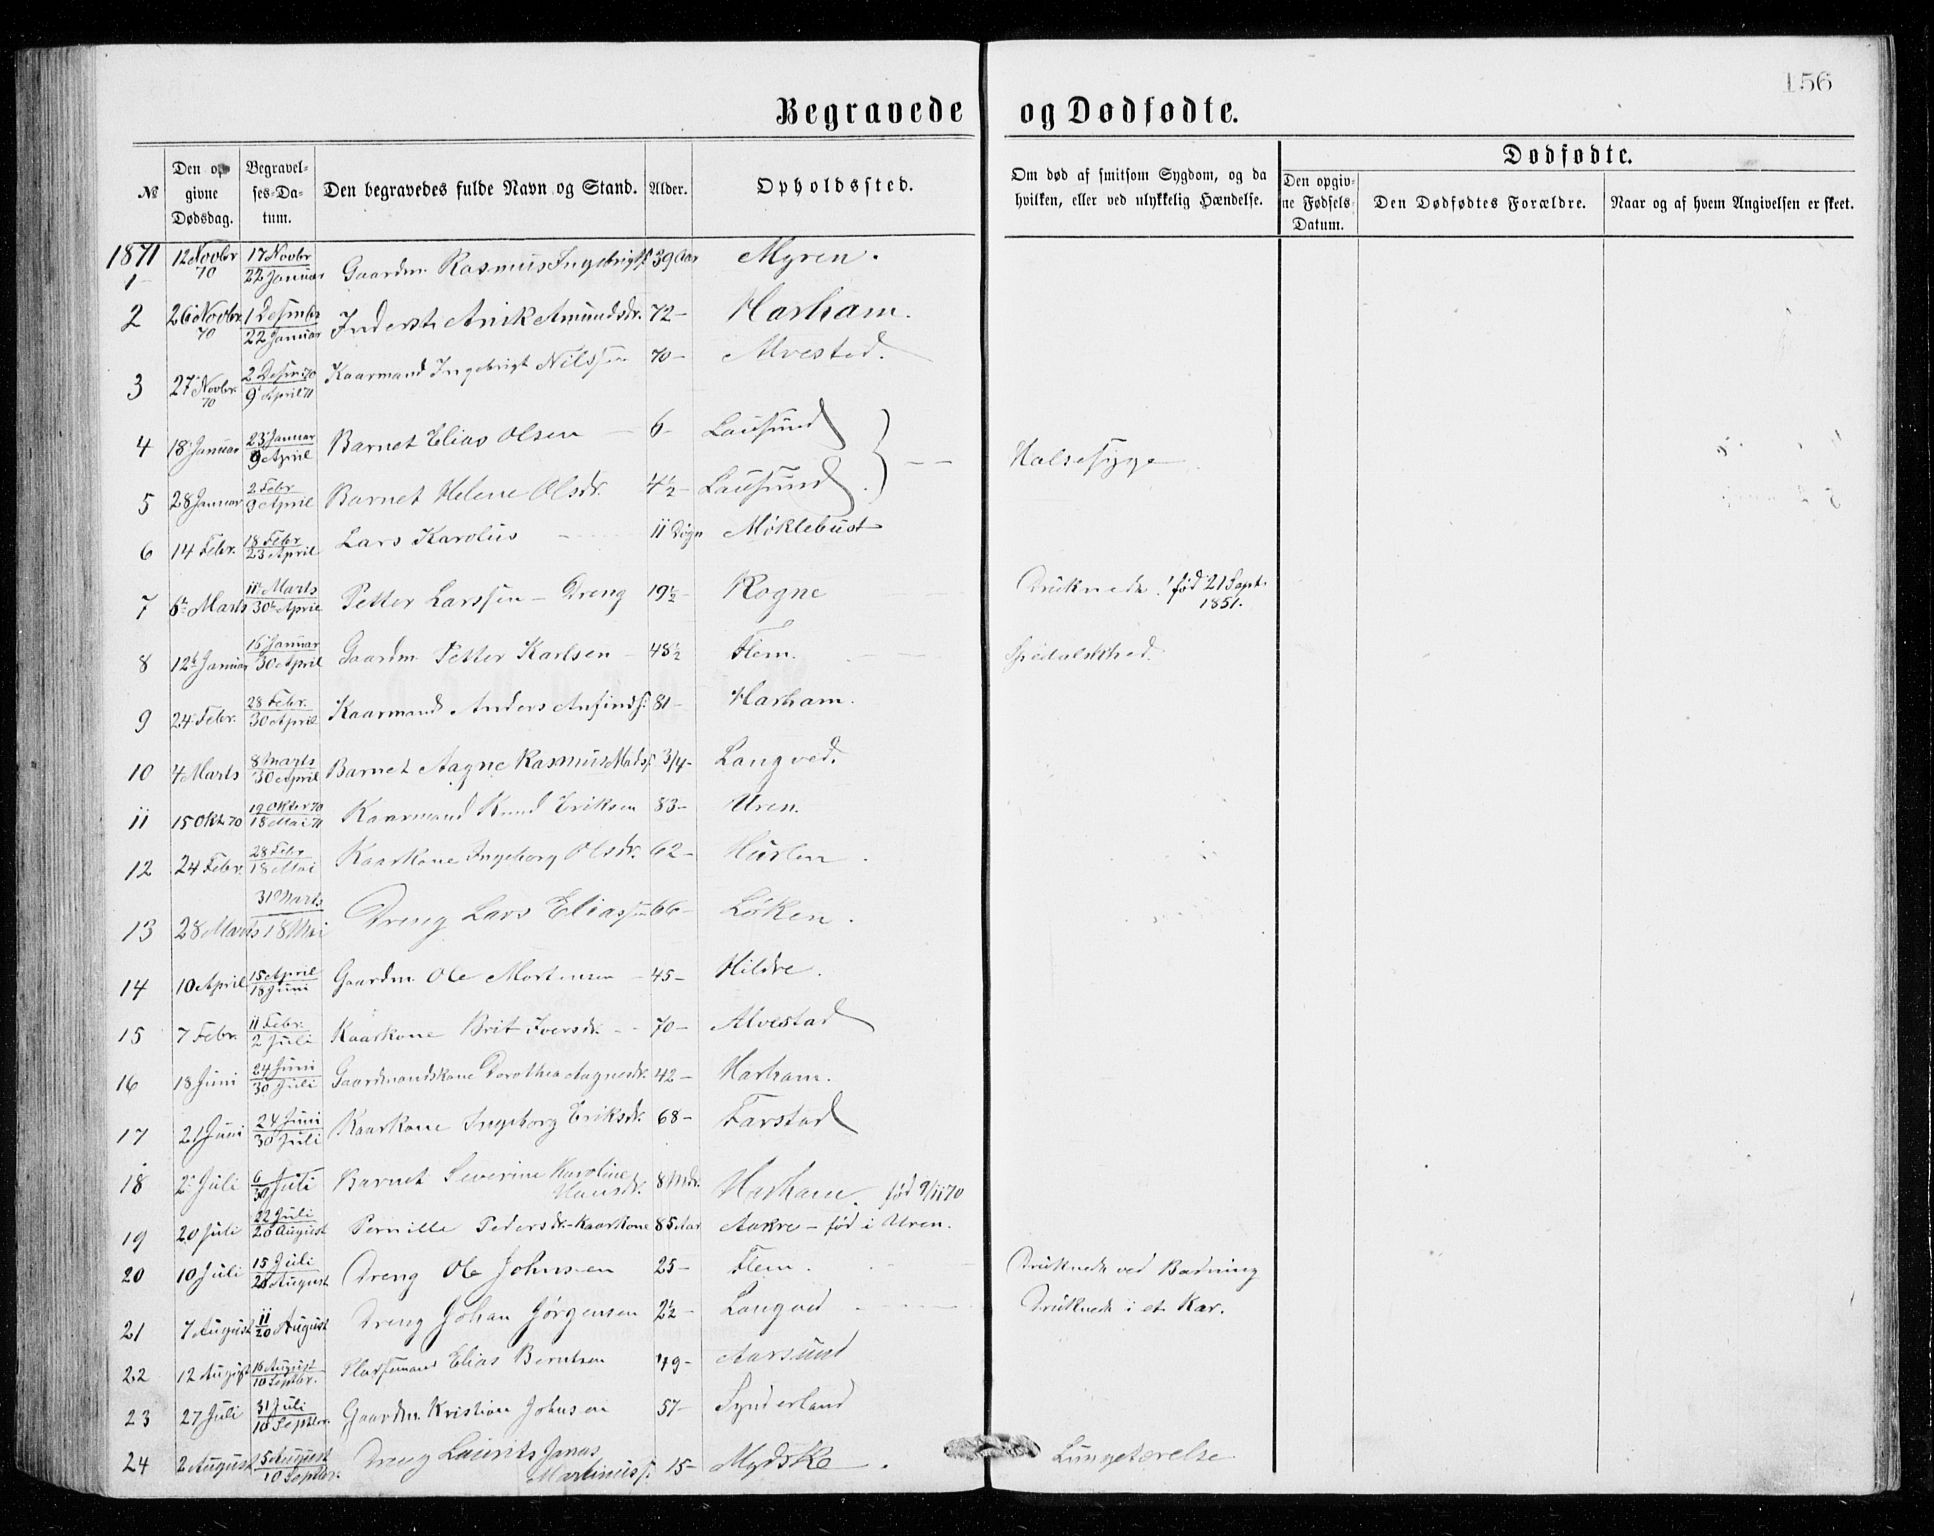 156
Begravede og Dødfødte.
№ Den opgivne Dødsdag. Begravelses-Datum. Den begravedes fulde Navn og Stand. Alder. Opholdssted. Om død af smitsom Sygdom, og da hvilken, eller ved ulykkelig Hændelse. Dødfødte. Den opgivne Fødsels-Datum. Den Dødfødtes Forældre. Naar og af hvem Angivelsen er skeet.
1871
1 12 Novbr 70 17 Novbr 22 Januar Gaardm. Rasmus Ingebrigts. 39 Aar Myren.
2 26 Novbr. 70 1 Desmbr 22 Januar Inderst Anik Amundsdr. 72- Harham.
3 27 Novbr. 70 2 Desm 70 9 April 71 Kaarmand Ingebrigt Nilssen 70- Alvestad.
4 18 Januar 23 Januar 9 April Barnet Elias Olsen 6- Lausund
Halsesyge
5 28 Januar 2 Febr 9 April Barnet Helene Olsdr. 4½- Lausund
6 14 Febr. 18 Febr 23 April Lars Karolus 11 Døgn Møklebust
7 6te Marts 11te Marts 30te April Petter Larssen - Dreng 19½- Rogne Druknede! født 21 Sept. 1851.
8 12te Januar 16 Januar 30 April Gaardm. Petter Karlsen - 48½ Flem. Spedalskhed.
9 24 Febr. 28 Febr. 30 April Kaarmand Anders Anfinds. 81- Harham.
10 4 Marts 8 Marts 30 April Barnet Aagne Rasmus Mads. 3/4- Langved.
11 15 Okt. 70 19 Oktbr 70 18 Mai 71 Kaarmand Knud Eriksen 83- Uren.
12 24 Febr. 28 Febr 18 Mai Kaarkone Ingeborg Olsdr. 62- Huslen
13 28 Marts 31 Marts 18 Mai Dreng Lars Eliassen 66- Løken.
14 10 April 15 April 18 Juni Gaardm. Ole Mortensen - 45- Hildre.
15 7 Febr. 11 Febr. 2 Juli Kaarkone Brit Iversdr. - 70- Alvestad
16 18 Juni 24 Juni 30 Juli Gaardmandskone Dorothea Aagnesdr. 42- Harham.
17 21 Juni 24 Juni 30 Juli Kaarkone Ingeborg Eriksdr. 68- Farstad
18 2 Juli 6/30 Juli Barnet Severine Karoline Hansdr. 8 Mdr. Harham. født 9/11 70
19 20 Juli 22 Juli 20 August Pernille Pedersdr.- Kaarkone 85 Aar Aakre - født i Uren.
20 10 Juli 15 Juli 20 August Dreng Ole Johnsen 25- Flem. Druknede ved Badning
21 7 August 11/20 August Dreng Johan Jørgensen 2½- Langved Druknede i et Kar.
22 12 August 16 August 10 Septbr. Pladsemand Elias Berntsen 49- Aarsund
23 27 Juli 31 Juli 10 Septbr. Gaardm. Kristian Johnsen 57- Synderland
24 2 August 5 August 10 Septbr. Dreng Laurits Janas Martinuss. 15- Mydske. Lungetærelse